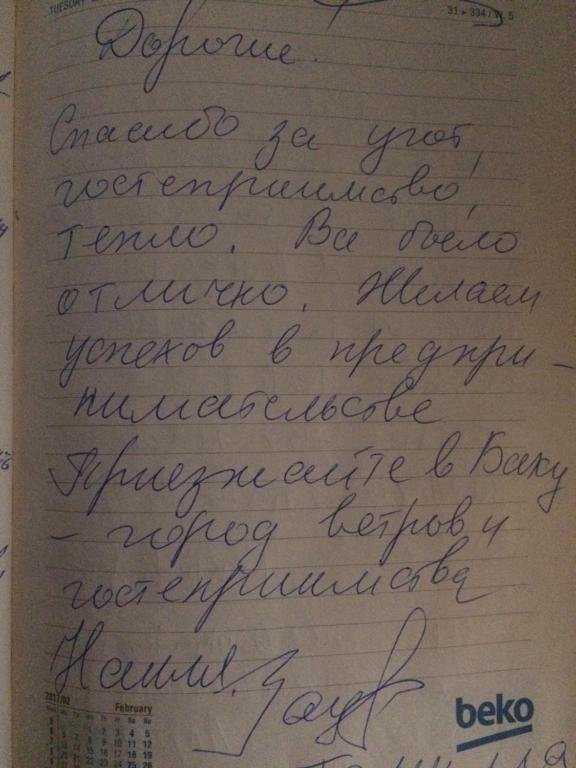 31 ▸ 334 / W. 5
Дорогие.
Спасибо за уют,
гостеприимство,
тепло. Все было
отлично. Желаем
успехов в предпри-
нимательстве
Приезжайте в Баку
- город ветров и
гостеприимства
Наиля.
2017/02 February
beko